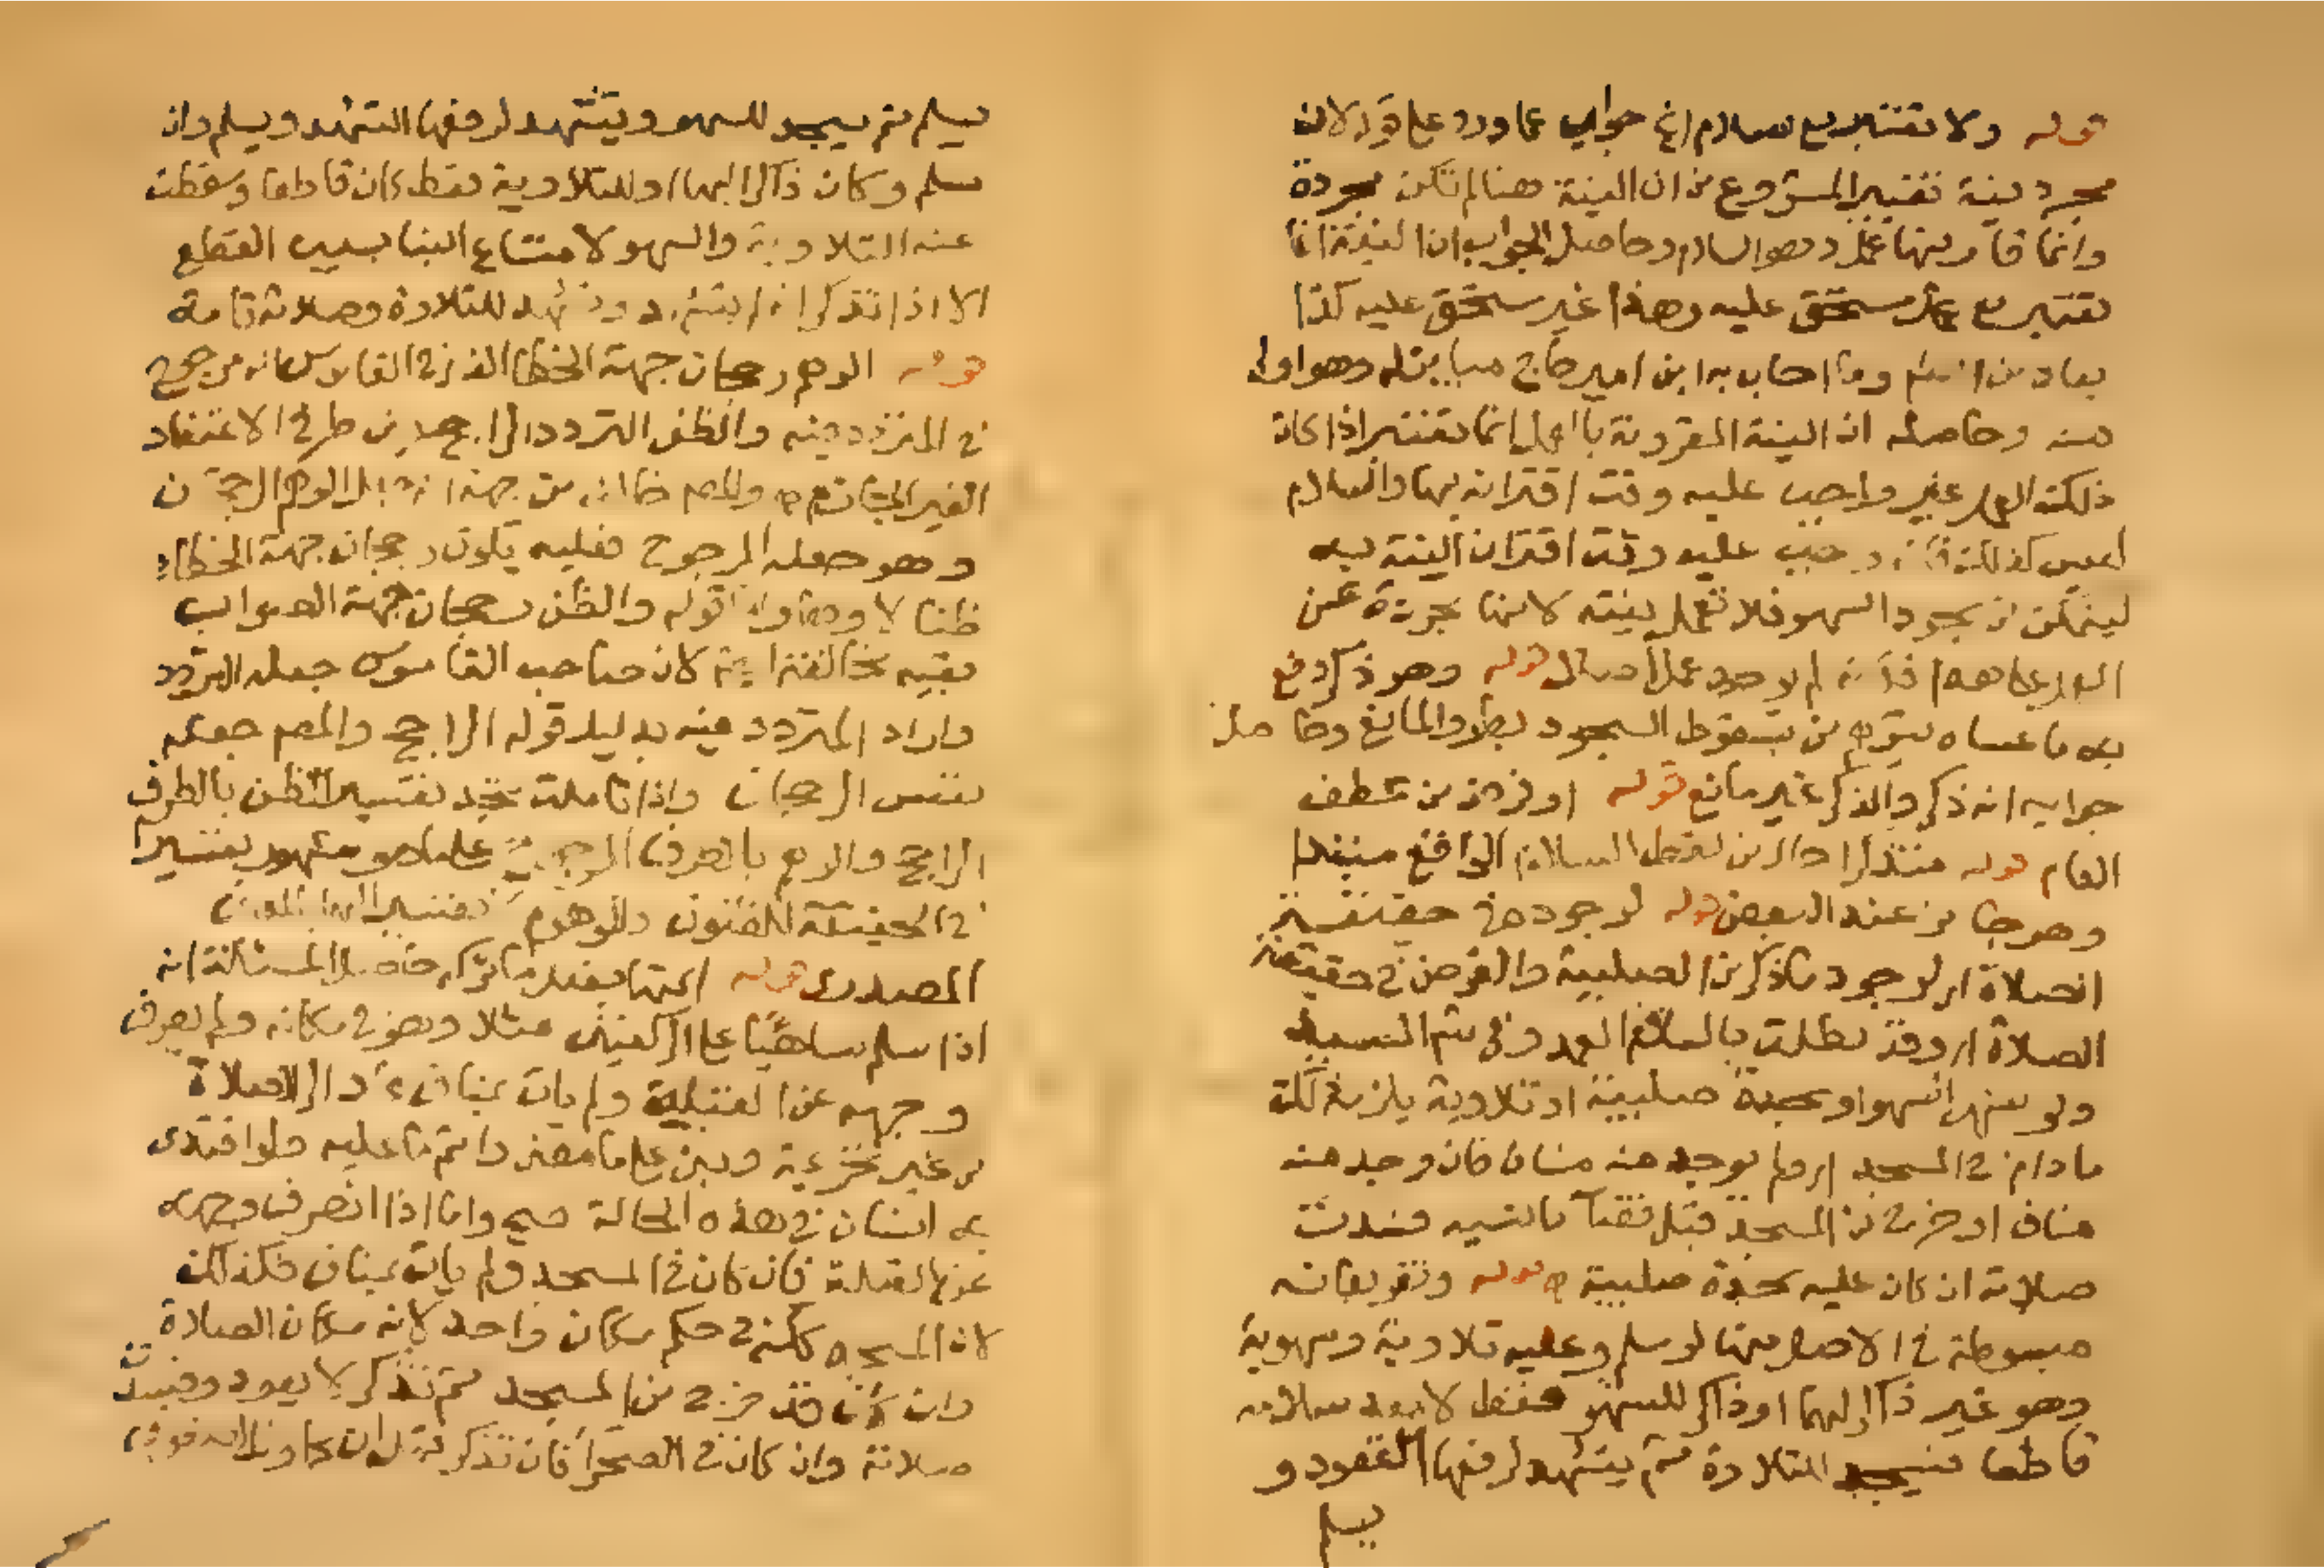 قوله ولا تعتبر مع سلام الخ جواب عما ورد على قوله لان
مجرد نية تغيير المشروع من ان النية هنا لم تكن مجردة
وانما قارنها عمل وهو السلام وحاصل الجواب ان النية انما
تعتبر مع عمل مستحق عليه وهذا غير مستحق عليه كذا
وما اجاب به ابن امير حاج مباين له وهو اولى
منه وحاصله ان النية المقرونة بالعمل انما تعتبر اذا كان
ذلك العمل غير واجب عليه وقت اقترانه بها والسلام
ليس كذلك فانه وجب عليه وقت اقتران النية به
ليتمكن من سجود السهو فلا تعمل نيته لانها مجردة عن
العمل لم يوجد عملا قوله وهو ذكر دفع
به ما عساه يتوهم من سقوط السجود بطرو المانع وحاصل
جوابه انه ذكر والذكر غير مانع قوله او فرض من عطف
العام قوله متذكرا حال من لفظ السلام الواقع مبتدا
وهو جائز عند البعض قوله لوجوده في حقيقة
الصلاة اي لوجود ما ذكر من الصلبية والفرض في حقيقة
الصلاة اي وقد بطلت بالسلام العمد وفي
ولو سهى السهو او سجدة صلبية او تلاوية يلزمه ذلك
ما دام في المسجد اي ولم يوجد منه مناف فان وجد منه
مناف او خرج من المسجد قبل قضاء ما نسيه فسدت
صلاته ان كان عليه سجدة صلبية قوله وتفريعاته
مبسوطة في الاصل منها لو سلم وعليه تلاوية وسهوية
وهو غير ذاكر لهما او ذاكر للسهو فقط لا يعد سلامه
قاطعا فيسجد للتلاوة ثم يتشهد لرفعها القعود و
يسلم
يسلم ثم يسجد للسهو ويتشهد لرفعها التشهد ويسلم وان
سلم وكان ذاكرا لهما او للتلاوية فقط كان قاطعا وسقطت
عنه التلاوية والسهو لامتناع البنا بسبب القطع
الا اذا تذكر انه لم يتشهد للتلاوة وصلاته تامة
قوله الوهم رجحان جهة الخطا الذي في القاموس انه مرجوح
في المتردد فيه والظن التردد الراجح بين طرفي الاعتقاد
الغير الجازم وللهم من جهة الوهم الرجحان
وهو جعله المرجوح فعليه يكون رجحان جهة الخطاء
ظنا لا وهما واما قوله والظن رجحان جهة الصواب
ففيه مخالفة لان صاحب القاموس جعله التردد
واراد المتردد فيه بدليل قوله الراجح والمص جعله
نفس الرجحان واذا تاملت تجد تفسير الظن بالطرف
الراجح والوهم بالطرف المرجوح على ما هو مشهور تفسيرا
في الحقيقة للمظنون والموهوم
المصدري قوله اتمها بفعل ما تركه حاصل المسئلة انه
اذا سلم ساهيا على الركعتين مثلا وهو في مكانه ولم يصرف
وجهه عن القبلة ولم يات بمناف عاد الى الصلاة
من غير تحريمة وبنى على ما مضى واتم ما عليه ولو اقتدى
به انسان في هذه الحالة صح واما اذا انصرف وجهه
عن القبلة فان كان في المسجد ولم يات بمناف فكذلك
لان المسجد كله في حكم مكان واحد لانه مكان الصلاة
وان كان قد خرج من المسجد ثم تذكر لا يعود وفسدت
صلاته وان كان في الصحرا فان تذكر قبل ان يجاوز الصفوف